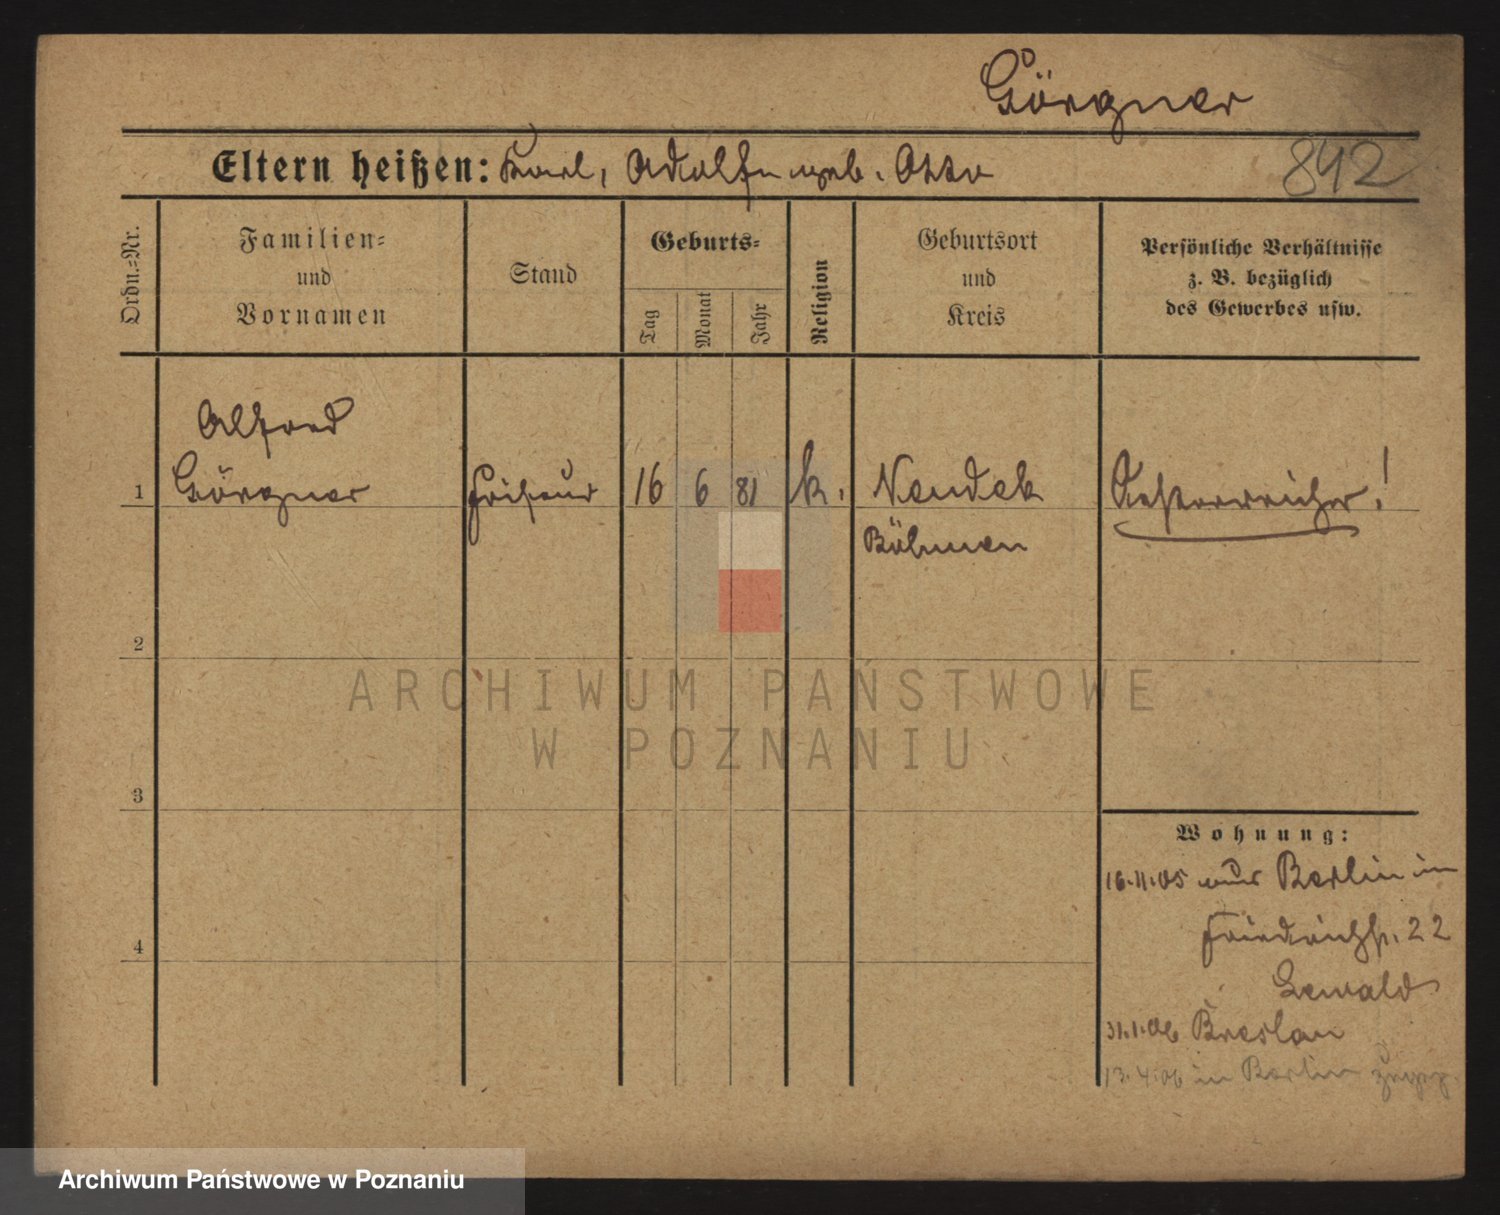 Görgner
Eltern heißen: Karl, Adolfn geb. Otto
842
Ordn.-Nr.
Familien-
und
Vornamen
Stand
Geburts-
Tag
Monat
Jahr
Religion
Geburtsort
und
Kreis
Persönliche Verhältnisse
z. B. bezüglich
des Gewerbes usw.
Alfred
1 Görgner Friseur 16 6 81 k. Neudek Oesterreicher!
Böhmen
2
ARCHIWUM PAŃSTWOWE
W POZNANIU
3
Wohnung:
16.11.05 aus Berlin in
Friedrichstr. 22
4
Lewald
31.1.06 Breslau
13.4.06 in Berlin
Archiwum Państwowe w Poznaniu